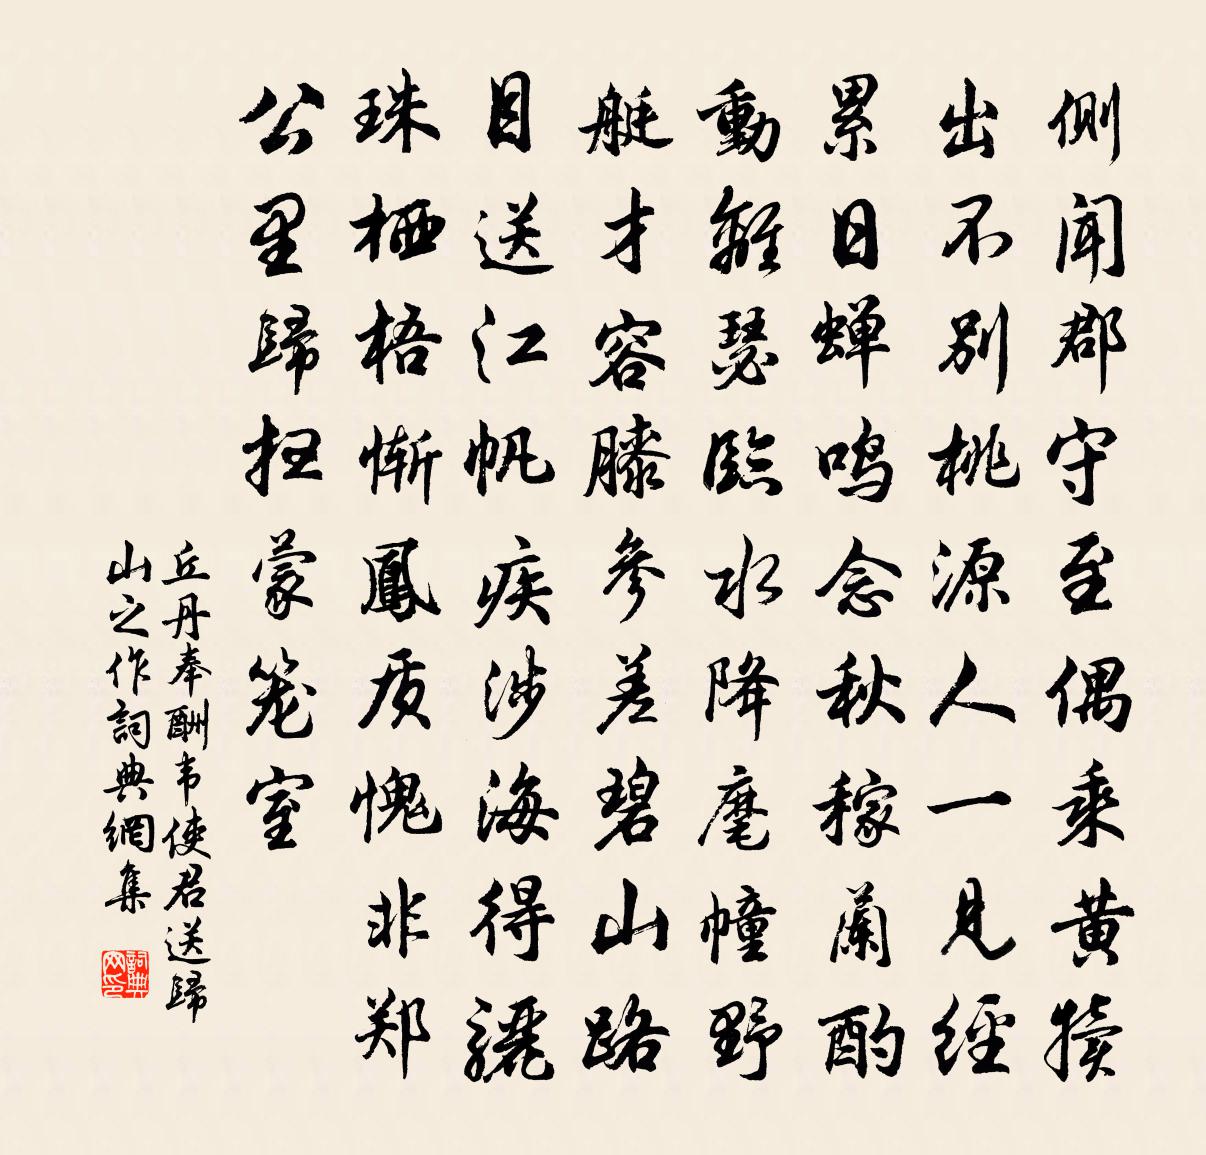 側聞郡守至偶乘黃犢
出不別桃源人一見經
累日蝉鸣念秋稼蘭酌
動離瑟臨水降麾幢野
艇才容膝參差碧山路
目送江帆疾涉海得驪
珠栖梧惭鳳质愧非郑
公里歸扫蒙笼室
丘丹奉酬韦使君送歸
山之作詞典網集
詞典
网印